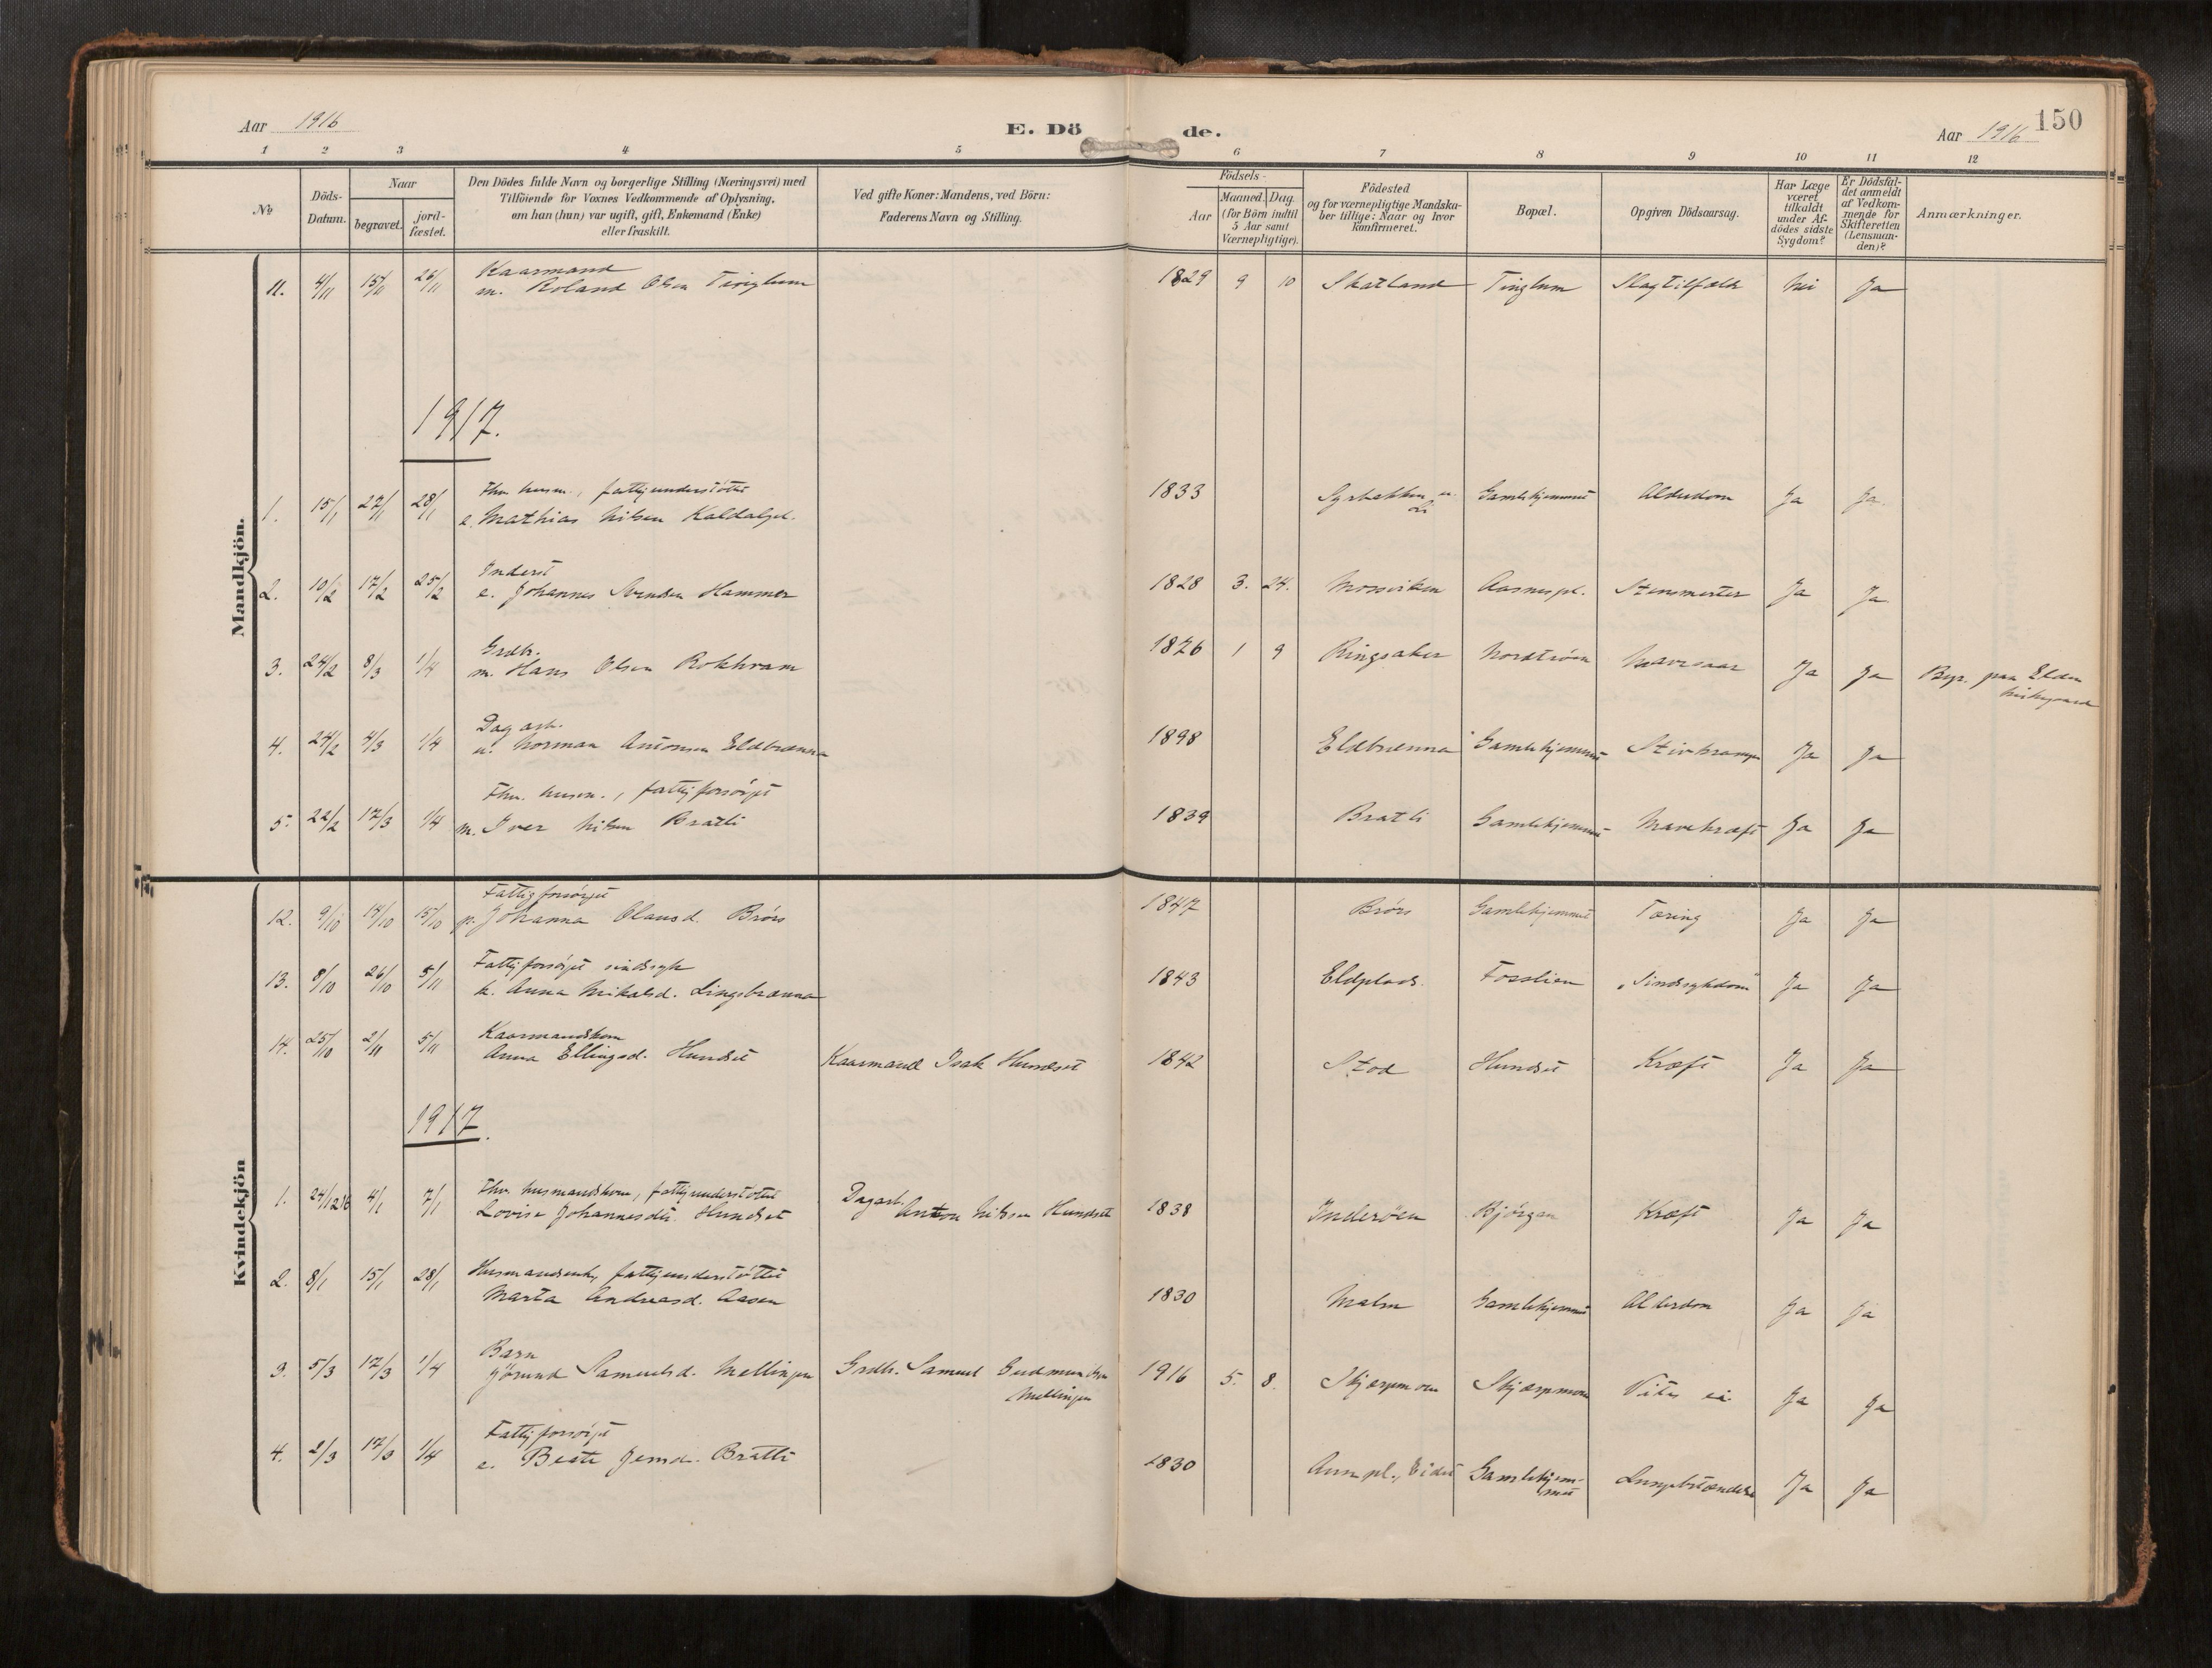 Aar 1916
E. Dö de.
Aar 1916
150
1 2 3 4 5 6 7 8 9 10 11 12
No.
Döds-Datum.
Naar
begravet.
jord-fæstet.
Den Dödes fulde Navn og borgerlige Stilling (Næringsvei) med
Tilföiende for Voxnes Vedkommende af Oplysning,
om han (hun) var ugift, gift, Enkemand (Enke)
eller fraskilt.
Ved gifte Koner: Mandens, ved Börn:
Faderens Navn og Stilling.
Födsels-
Aar
Maaned. Dag.
(for Börn indtil
5 Aar samt
Værnepligtige).
Födested
og for værnepligtige Mandska-
ber tillige: Naar og hvor
konfirmeret.
Bopæl.
Opgiven Dödsaarsag.
Har Læge
været
tilkaldt
under Af-
dödes sidste
Sygdom?
Er Dödsfal-
det anmeldt
af Vedkom-
mende for
Skifteretten
(Lensman-
den)?
Anmærkninger.
Mandkjön.
Kaarmand
11. 4/11 15/11 26/11 m. Roland Olsen Tinglum 1829 9 10 Skatland Tinglum Slagtilfælde Nei Ja
1917.
Fhv. husm., fattigunderstöttet
1. 15/1 27/1 28/1 e. Mathias Nilsen Kaldalspl. 1833 Gamlehjemmet Alderdom Ja Ja.
Inderst
2. 10/2 17/2 25/2 e. Johannes Svendsen Hammer 1828 3. 24. Mosviken Aasnespl. Stensmerter Ja Ja
Grdbr.
3. 24/2 8/3 1/4 m. Hans Olsen Rokkvam 1826 1 9 Ringsaker Nordtröen Mavesaar Ja Ja Begr. paa Elden
kirkegaard
Dagarb.
4. 24/2 4/3 1/4 u. Norman Antonsen Eldbrænna 1898 Eldbrænna Gamlehjemmet Stivkrampe Ja Ja
Fhv. husm., fattigforsörget
5. 22/2 17/3 1/4 m. Iver Nilsen Bratli 1839 Bratli Gamlehjemmet Mavekræft Ja Ja
Kvindekjön
Fattigforsörget
12. 9/10 14/10 15/10 p. Johanna Olausd. Brörs 1847 Brörs Gamlehjemmet Tæring Ja Ja
Fattigforsörget sindssyk
13. 8/10 26/10 5/11 Anna Mikalsd. Lingsbrænna 1843 Eldplads. Fosslien "Sindssykdom" Ja Ja
Kaarmandskone
14. 25/10 2/11 5/11 Anna Ellingsd. Hundset Kaarmand Isak Hundset 1842 Stod Hundset Kræft Ja Ja
1917.
Fhv. husmandskone, fattigunderstöttet
1. 24/12 16 4/1 7/1 Lovise Johannesdtr. Hundset Dagarb. Anton Nilsen Hundset 1838 Inderöen Bjørgan Kræft Ja Ja
Husmandsenke, fattigunderstöttet
2. 8/1 15/1 28/1 Marta Andreasd. Aasen 1830 Malm Gamlehjemmet Alderdom Ja Ja
Barn
3. 5/3 17/3 1/4 Jörund Samuelsd. Mellingen Grdbr. Samuel Gudmundsen
Mellingen 1916 5. 8. Skjærpmoen Skjærpmoen Vites ei Ja Ja
Fattigforsörget
4. 2/3 17/3 1/4 e. Beate Jensd. Bratli 1830 Gamlehjem-
met Lungebetændelse Ja Ja